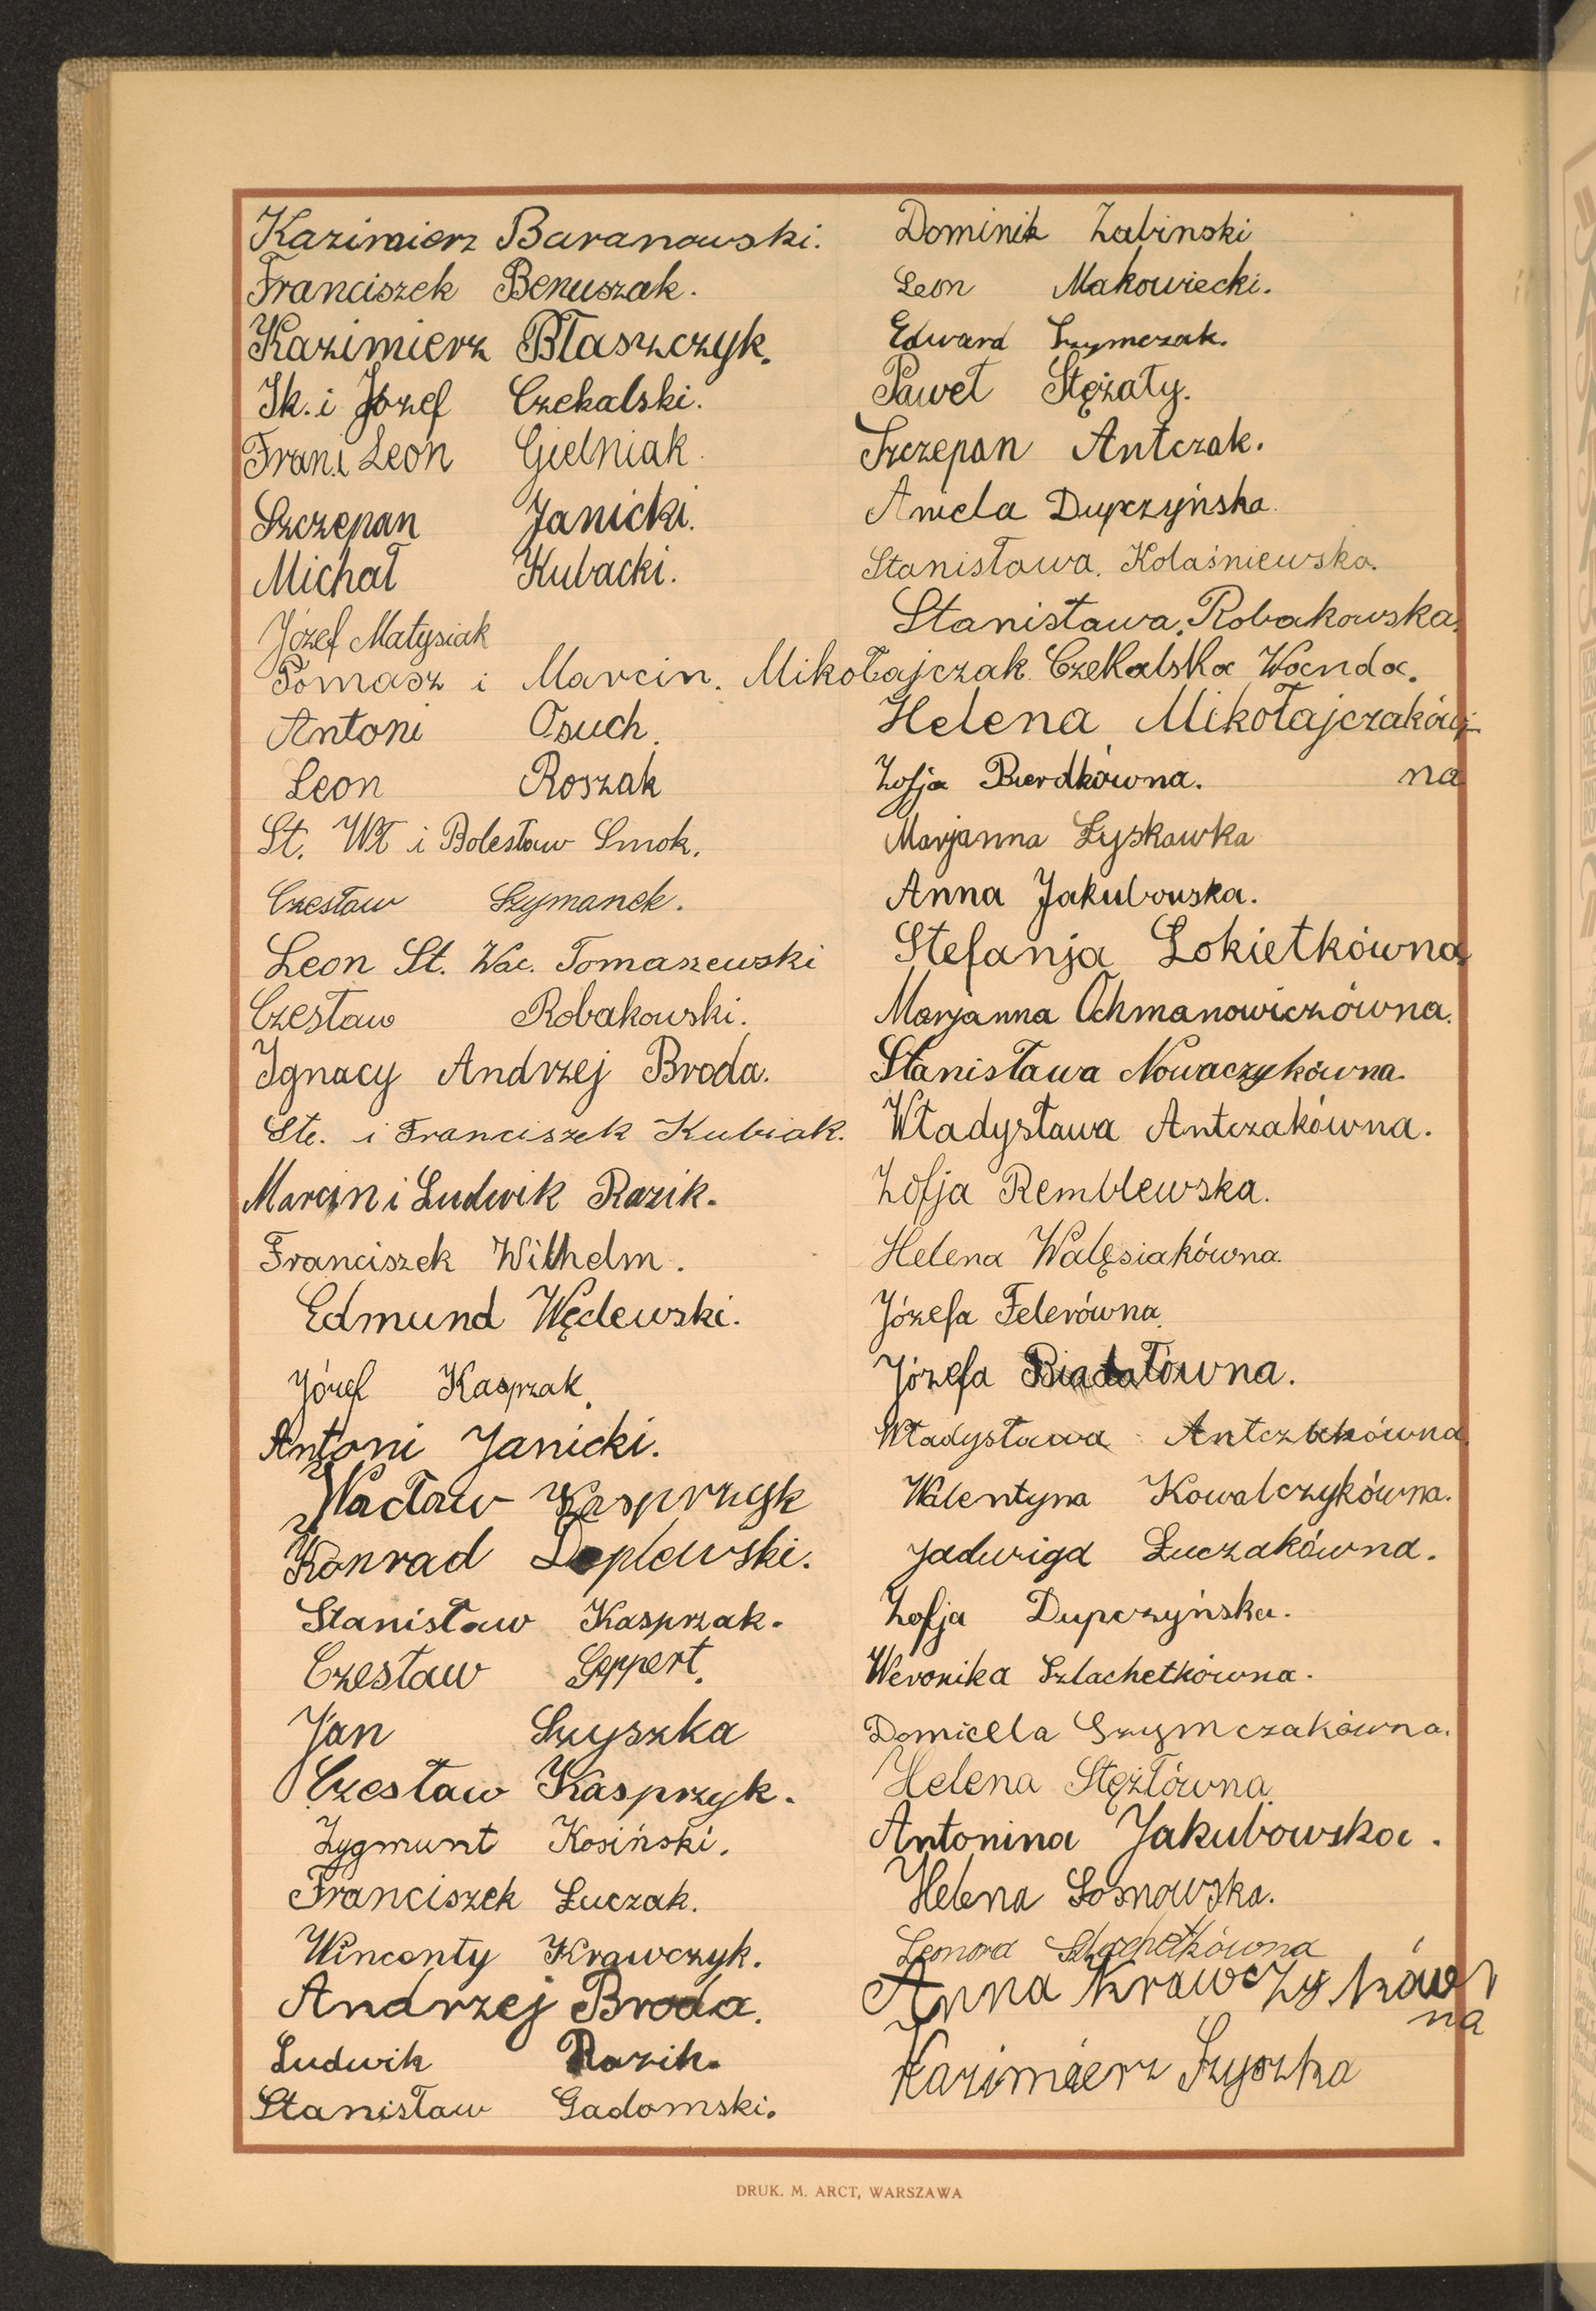 Kazimierz Baranowski.
Franciszek Benuszak.
Kazimierz Błaszczyk.
Ik. i Józef Czekalski.
Fran. i Leon Gielniak.
Szczepan Janicki.
Michał Kubacki.
Józef Matysiak
Tomasz i Marcin. Mikołajczak
Antoni Osuch.
Leon Roszak
St. Wł i Bolesław Smok.
Czesław Szymanek.
Leon St. Wac. Tomaszewski
Czesław Robakowski.
Ignacy Andrzej Broda.
Ste. i Franciszek Kubiak.
Marcin i Ludwik Razik.
Franciszek Wilhelm.
Edmund Węclewski.
Józef Kasprzak.
Antoni Janicki.
Wacław Kasprzyk
Konrad Deplewski.
Stanisław Kasprzak.
Czesław Geppert.
Jan Szyszka
Czesław Kasprzyk.
Zygmunt Kosiński.
Franciszek Łuczak.
Wincenty Krawczyk.
Andrzej Broda.
Ludwik Razik.
Stanisław Gadomski.
Dominik Żabinski
Leon Makowiecki.
Edward Szymczak.
Paweł Stężały.
Szczepan Antczak.
Aniela Dupczyńska.
Stanisława. Kolaśniewska.
Stanisława. Robakowska.
Czekalska Wanda.
Helena Mikołajczaków-
na
Zofja Bierdkówna.
Marjanna Łyskawka
Anna Jakubowska.
Stefanja Łokietkówna.
Marjanna Ochmanowiczówna.
Stanisława Nowaczykówna.
Władysława Antczakówna.
Zofja Remblewska.
Helena Walęsiakówna.
Józefa Felerówna.
Józefa
Władysława Antczakówna.
Walentyna Kowalczykówna.
Jadwiga Łuczakówna.
Zofja Dupczyńska.
Weronika Szlachetkówna.
Domicela Szymczakówna.
Helena Stężłówna.
Antonina Jakubowska.
Helena Sosnowska.
Leonora Szlachetkówna
Anna Krawczyków
na
Kazimierz Szyszka
DRUK. M. ARCT, WARSZAWA